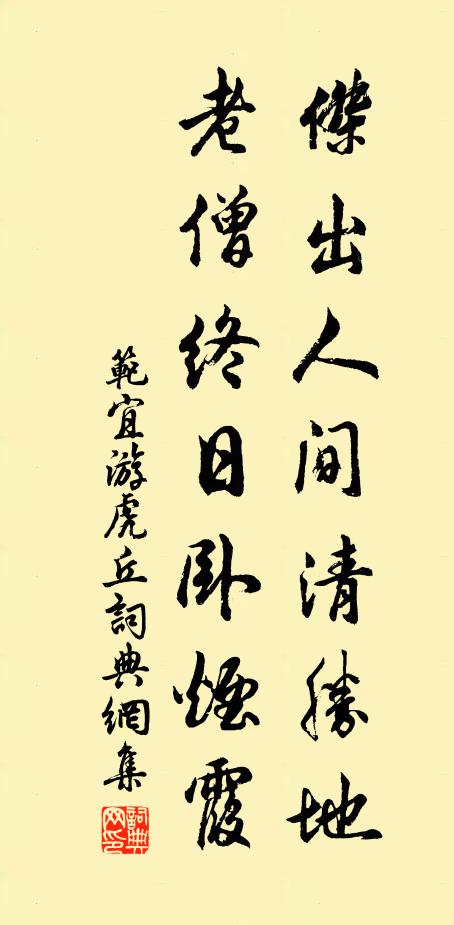 傑出人间清勝地
老僧終日卧煙霞
範宜游虎丘詞典網集
詞典网印